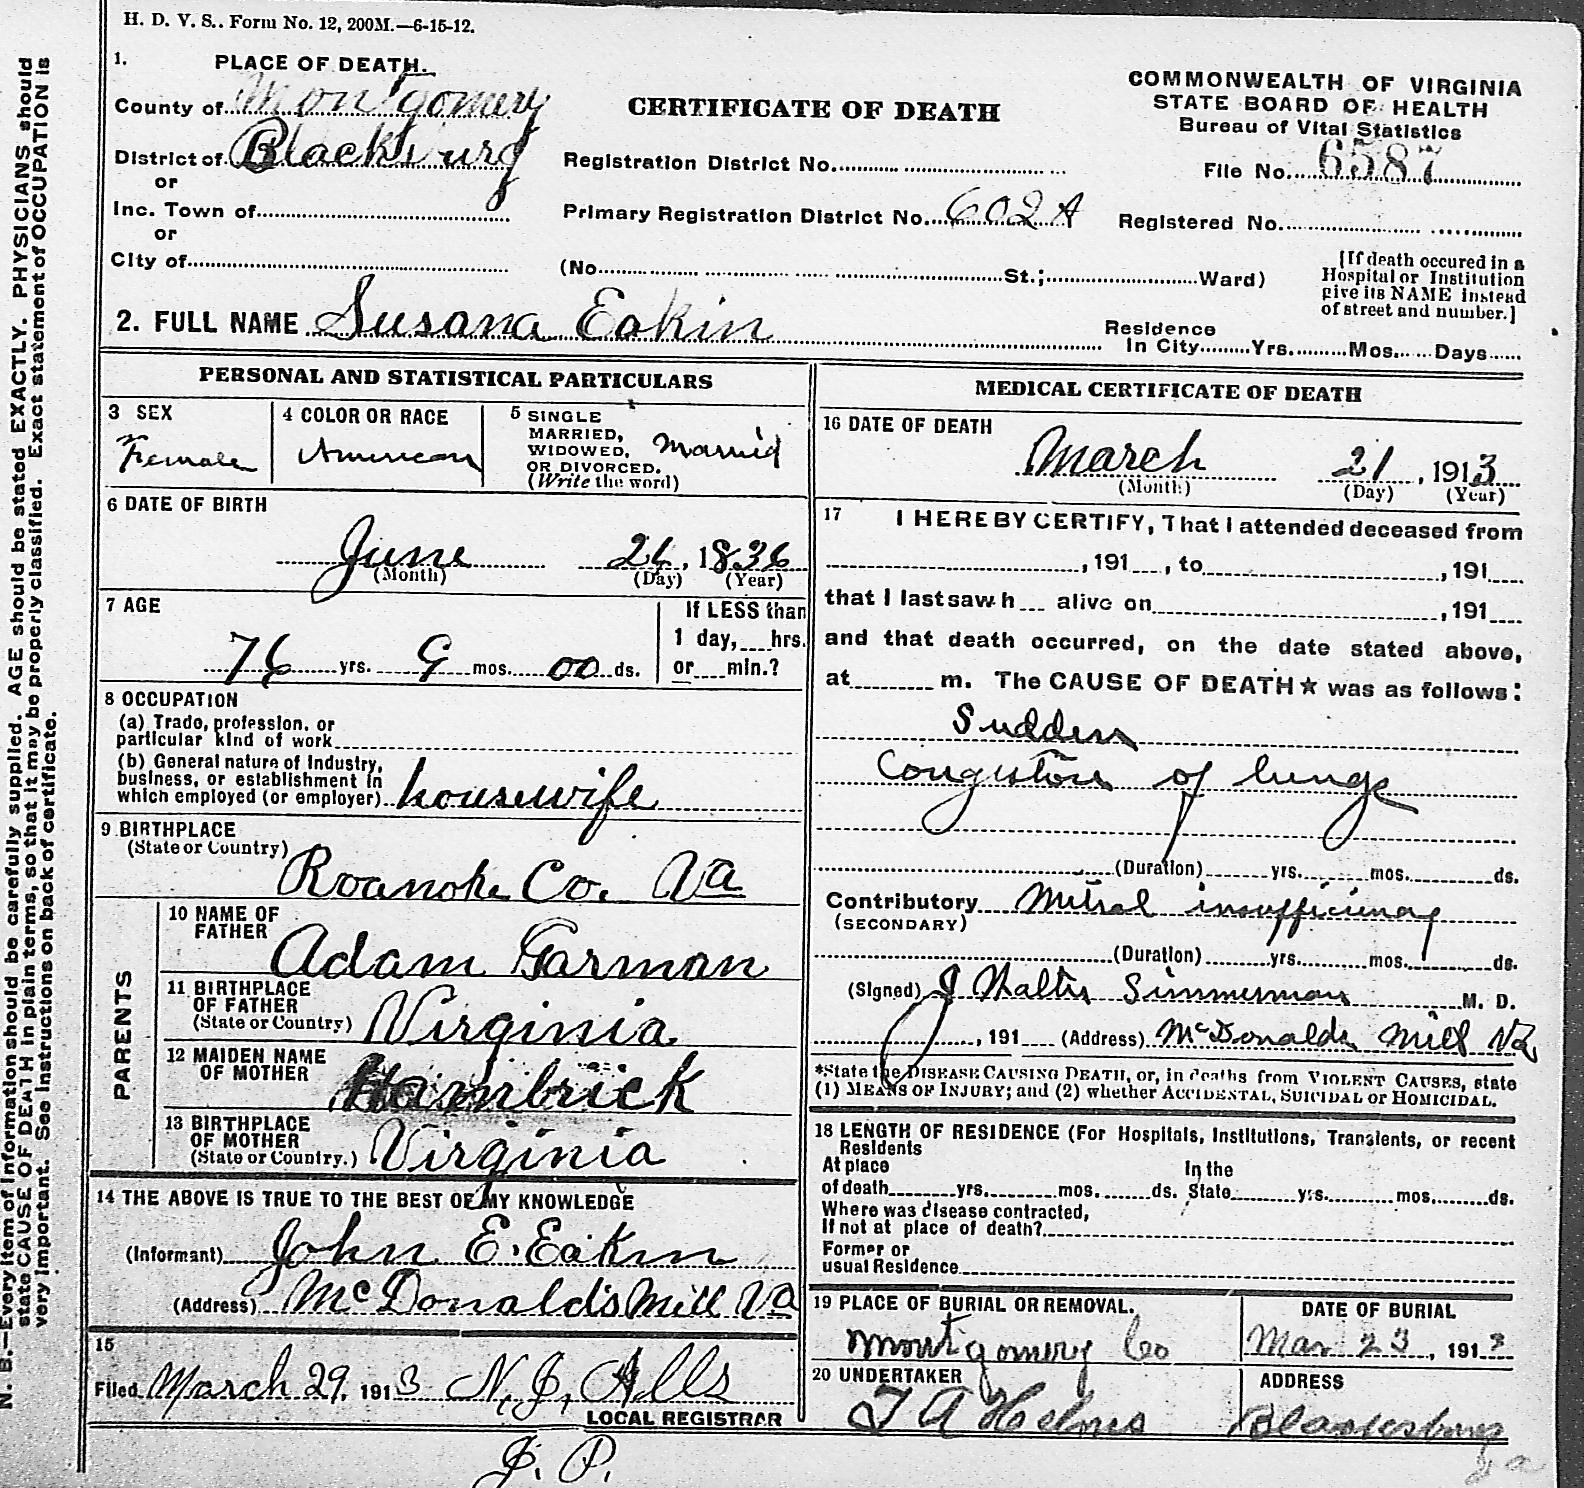 H. D. V. S.. Form No. 12, 200M.—6-15-12.
1. PLACE OF DEATH.
County of Montgomery
District of Blacksburg
or
Inc. Town of
or
City of
CERTIFICATE OF DEATH
Registration District No.
Primary Registration District No. 602A
(No. St.; Ward)
COMMONWEALTH OF VIRGINIA
STATE BOARD OF HEALTH
Bureau of Vital Statistics
File No. 6587
Registered No.
[If death occured in a
Hospital or Institution
give its NAME instead
of street and number.]
2. FULL NAME Susana Eakin
Residence
In City Yrs. Mos. Days
PERSONAL AND STATISTICAL PARTICULARS
3 SEX
Female
4 COLOR OR RACE
American
5 SINGLE
MARRIED,
WIDOWED,
OR DIVORCED.
(Write the word)
Married
6 DATE OF BIRTH
June 26, 1836
(Month) (Day) (Year)
7 AGE
76 yrs. 9 mos. 00 ds.
If LESS than
1 day, hrs.
or min.?
8 OCCUPATION
(a) Trade, profession, or
particular kind of work
(b) General nature of Industry,
business, or establishment in
which employed (or employer) housewife
9 BIRTHPLACE
(State or Country)
Roanoke Co. Va
PARENTS
10 NAME OF
FATHER
Adam Garman
11 BIRTHPLACE
OF FATHER
(State or Country) Virginia
12 MAIDEN NAME
OF MOTHER
Hambrick
13 BIRTHPLACE
OF MOTHER
(State or Country.) Virginia
14 THE ABOVE IS TRUE TO THE BEST OF MY KNOWLEDGE
(Informant) John E. Eakin
(Address) McDonald's Mill Va
15
Filed March 29, 1913 N. J. Alls
LOCAL REGISTRAR
J. P.
MEDICAL CERTIFICATE OF DEATH
16 DATE OF DEATH
March 21, 1913
(Month) (Day) (Year)
17 I HEREBY CERTIFY, That I attended deceased from
, 191 , to , 191
that I last saw h alive on , 191
and that death occurred, on the date stated above,
at m. The CAUSE OF DEATH★ was as follows:
Sudden
Congestion of lungs
(Duration) yrs. mos. ds.
Contributory Mitral insufficiency
(SECONDARY)
(Duration) yrs. mos. ds.
(Signed) J Walter Simmerman M. D.
, 191 (Address) McDonalds Mill Va
*State the DISEASE CAUSING DEATH, or, in deaths from VIOLENT CAUSES, state
(1) MEANS OF INJURY; and (2) whether ACCIDENTAL, SUICIDAL or HOMICIDAL.
18 LENGTH OF RESIDENCE (For Hospitals, Institutions, Transients, or recent
Residents
At place In the
of death yrs. mos. ds. State yrs. mos. ds.
Where was disease contracted,
If not at place of death?
Former or
usual Residence
19 PLACE OF BURIAL OR REMOVAL.
Montgomery Co
DATE OF BURIAL
Mar 23, 1913
20 UNDERTAKER
T A Helms
ADDRESS
Blacksburg
Va
N. B.—Every item of information should be carefully supplied. AGE should be stated EXACTLY. PHYSICIANS should
state CAUSE OF DEATH in plain terms, so that it may be properly classified. Exact statement of OCCUPATION is
very important. See instructions on back of certificate.